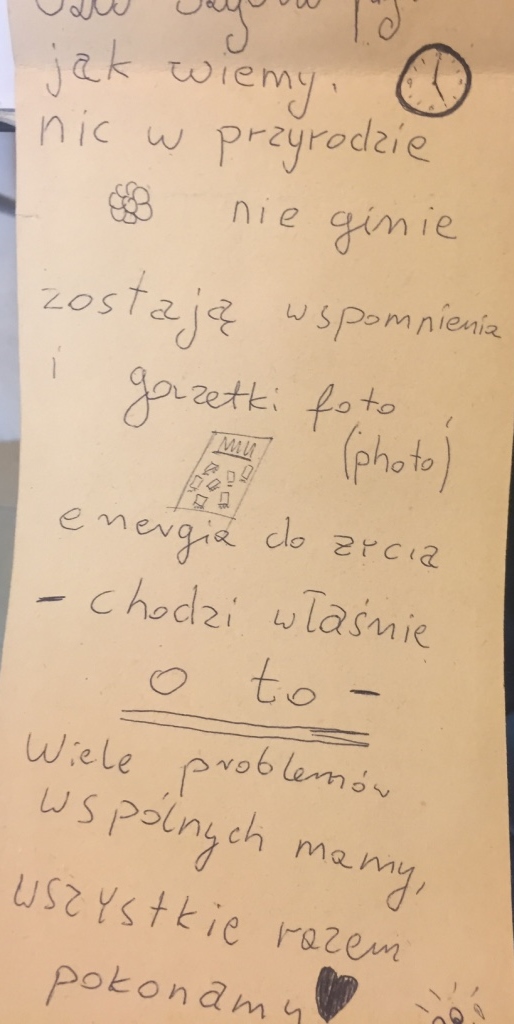 jak wiemy.
nic w przyrodzie
nie ginie
zostają wspomnienia
i gazetki foto,
(photo)
energia do życia
- chodzi właśnie
o to -
Wiele problemów
wspólnych mamy,
wszystkie razem
pokonamy